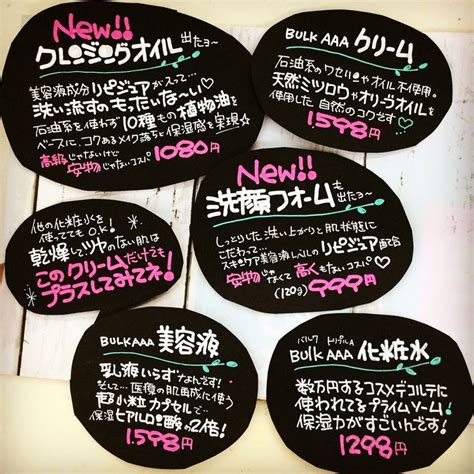 New!!
クレンジングオイル 出たヨ〜
美容液成分リピジュアが入って…
洗い流すのもったいな〜い♡
石油系を使わず10種もの植物油を
ベースに、コクあるメイク落ちと保湿感を実現☆
高級じゃないけど
安物じゃないコスパ 1080円
BULK AAA クリーム
石油系のワセリンやオイル不使用。
天然ミツロウやオリーヴオイルを
使用した自然のコクです♡
1.598円
New!!
洗顔フォームも出たヨ〜
しっとりした洗い上がりと肌状態に
こだわって…
スキンケア美容液レベルのリピジュア配合
安物じゃなくて高くもないコスパ♡
(120g) 999円
他の化粧水を
使ってても O.K!
乾燥してツヤのない肌は
このクリームだけでも
プラスしてみてネ!
BULK AAA 美容液
乳液いらずなんです!
そして…医療の肌再成に使う
超小粒カプセルで…
保湿ヒアルロン酸の2倍!
1.598円
バルク トリプルA
Bulk AAA 化粧水
数万円するコスメデコルテに
使われてるプライムソーム!
保湿力がすごいんです!
1298円